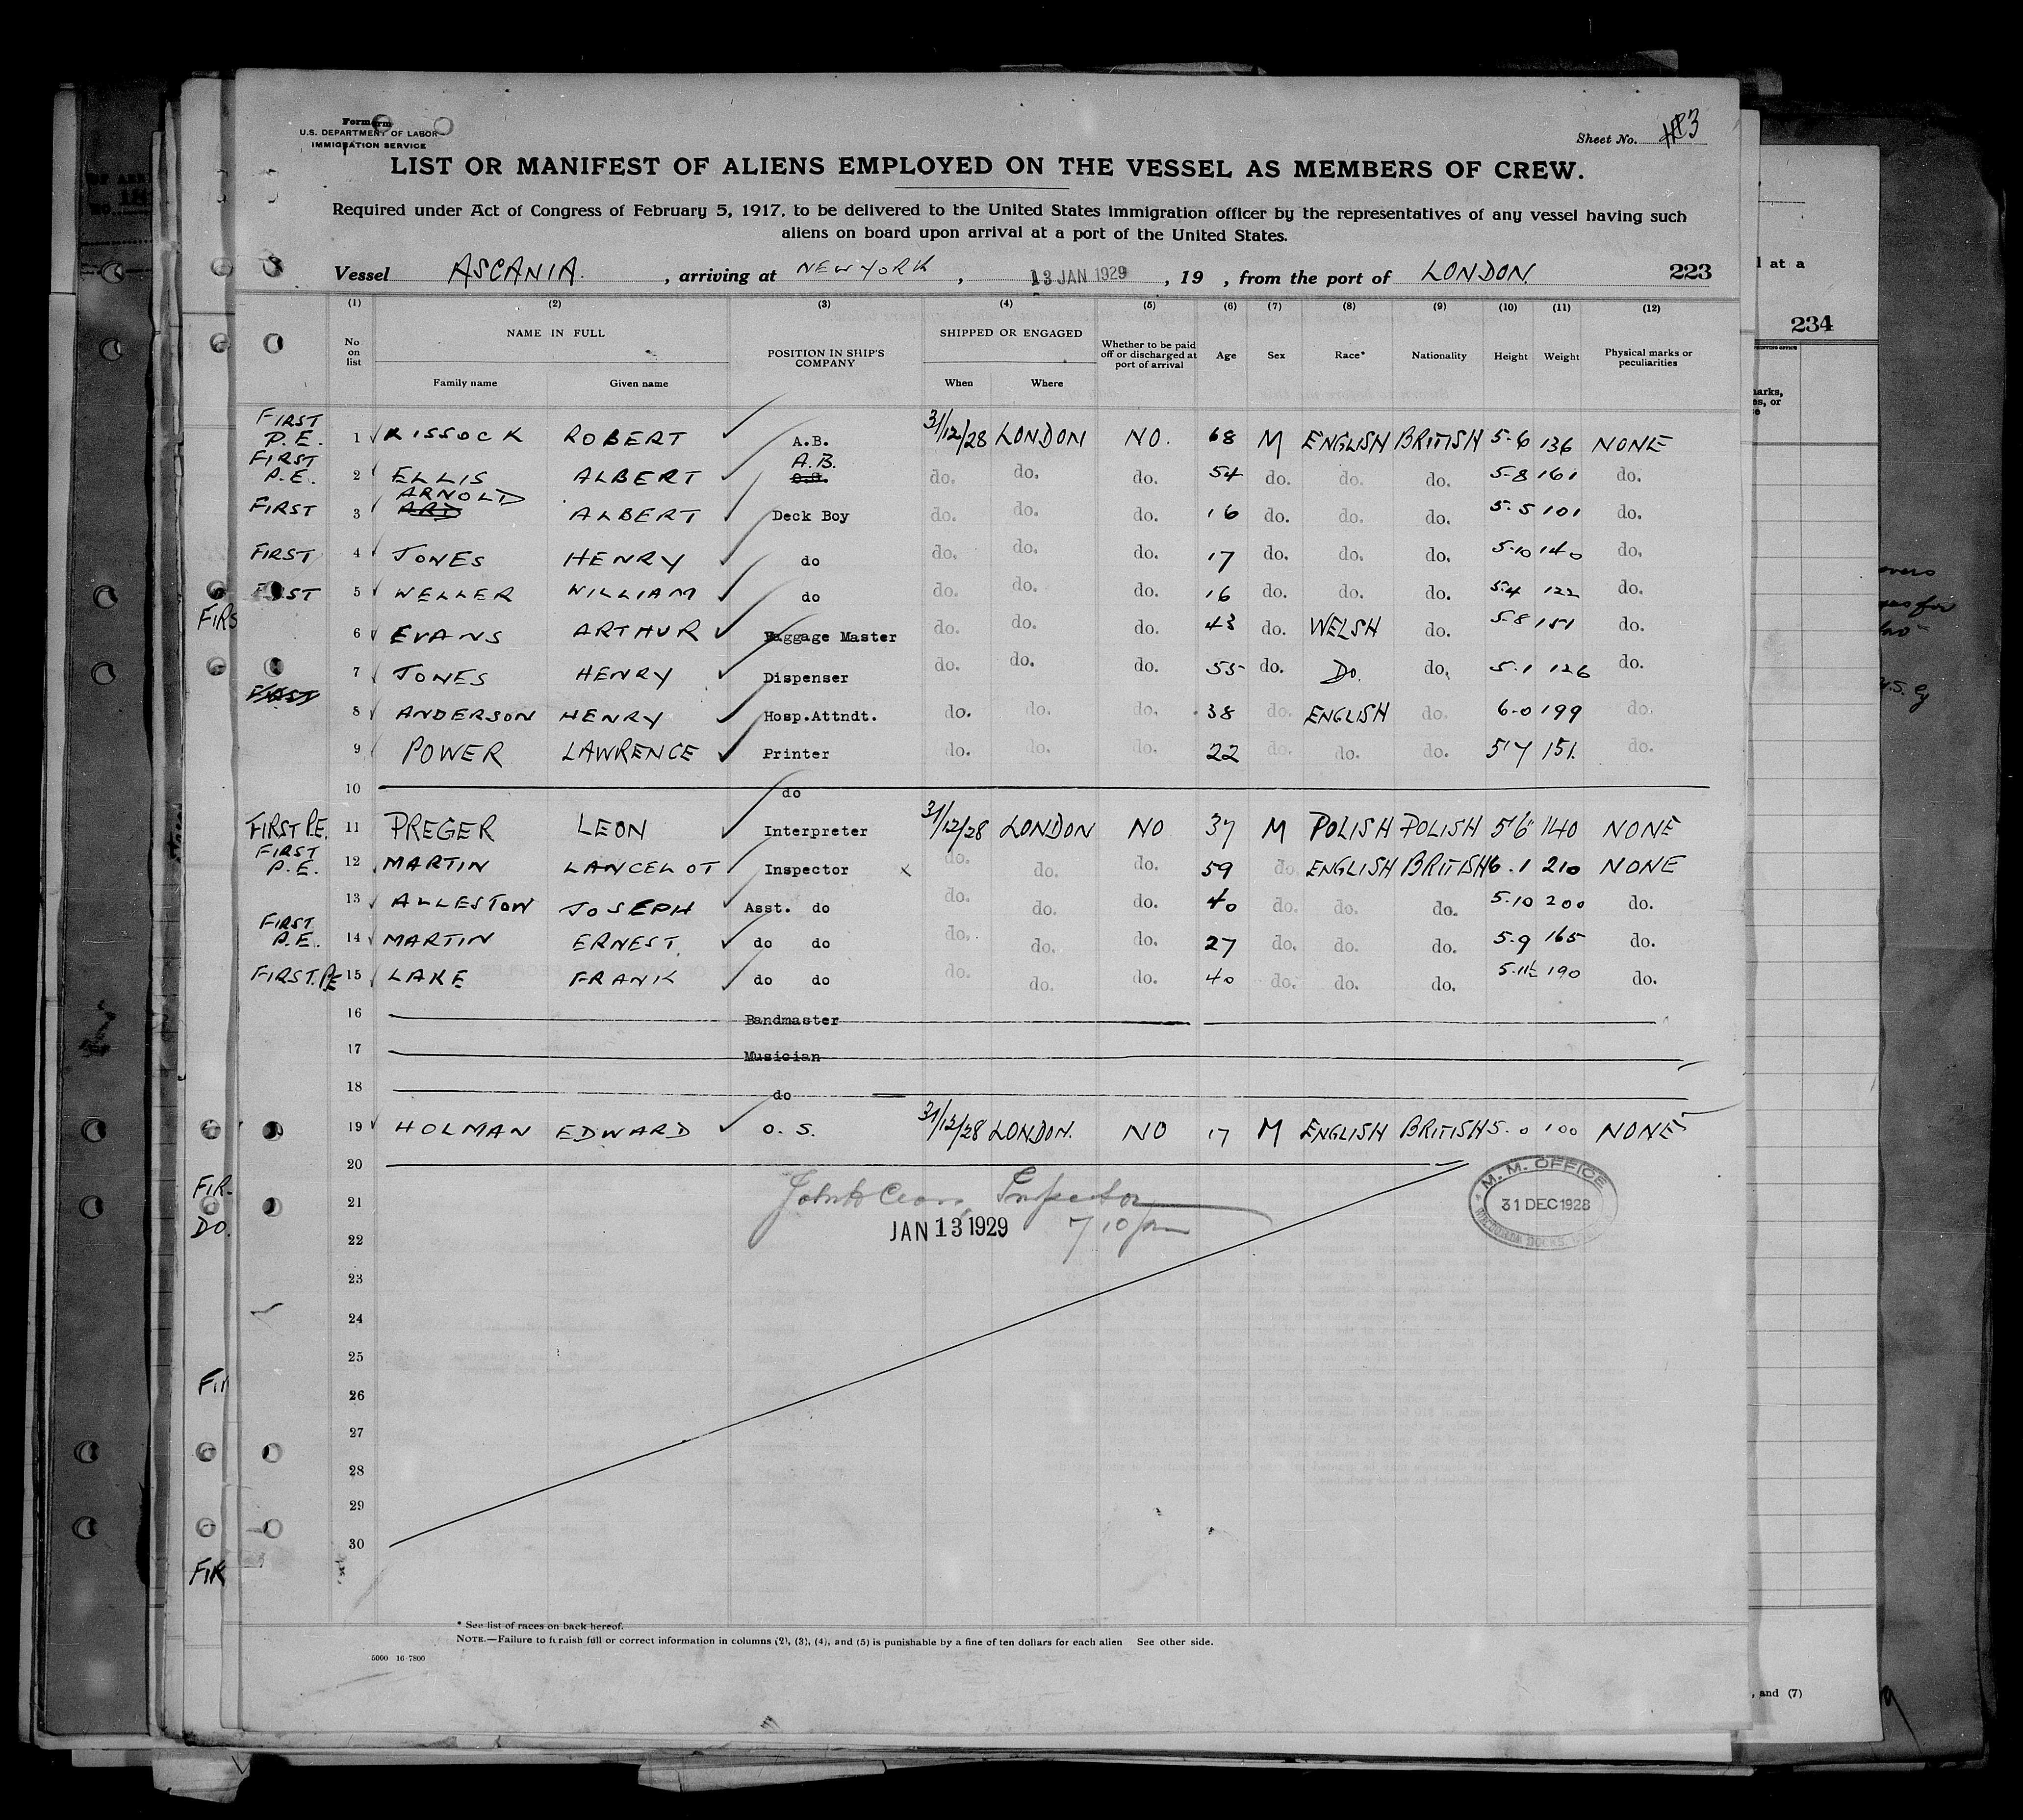 U.S. DEPARTMENT OF LABOR
IMMIGRATION SERVICE
Sheet No. 3
LIST OR MANIFEST OF ALIENS EMPLOYED ON THE VESSEL AS MEMBERS OF CREW.
Required under Act of Congress of February 5, 1917, to be delivered to the United States immigration officer by the representatives of any vessel having such
aliens on board upon arrival at a port of the United States.
Vessel ASCANIA. , arriving at NEW YORK , 13 JAN 1929 , 19 , from the port of LONDON. 223
(1) (2) (3) (4) (5) (6) (7) (8) (9) (10) (11) (12)
No on list NAME IN FULL Family name Given name POSITION IN SHIP'S COMPANY SHIPPED OR ENGAGED When Where Whether to be paid off or discharged at port of arrival Age Sex Race* Nationality Height Weight Physical marks or peculiarities
FIRST P.E. 1 KISSOCK ROBERT A.B. 31/12/28 LONDON NO. 68 M ENGLISH BRITISH 5-6 136 NONE
FIRST P.E. 2 ELLIS ALBERT A.B. O.S. do. do. do. 54 do. do. do. 5-8 161 do.
FIRST 3 ARNOLD ARD ALBERT Deck Boy do. do. do. 16 do. do. do. 5-5 101 do.
FIRST 4 JONES HENRY do do. do. do. 17 do. do. do. 5-10 140 do.
FIRST 5 WELLER WILLIAM do do. do. do. 16 do. do. do. 5-4 122 do.
6 EVANS ARTHUR Baggage Master do. do. do. 43 do. WELSH do. 5-8 151 do.
7 JONES HENRY Dispenser do. do. do. 55 do. Do. do. 5-1 126 do.
FIRST 8 ANDERSON HENRY Hosp.Attndt. do. do. do. 38 do. ENGLISH do. 6-0 199 do.
9 POWER LAWRENCE Printer do. do. do. 22 do. do. do. 5'7 151. do.
10 do
FIRST P.E. 11 PREGER LEON Interpreter 31/12/28 LONDON NO 37 M POLISH POLISH 5'6" 140 NONE
FIRST P.E. 12 MARTIN LANCELOT Inspector x do. do. do. 59 do. ENGLISH BRITISH 6.1 210 NONE
13 ALLESTON JOSEPH Asst. do do. do. do. 40 do. do. do. 5-10 200 do.
FIRST P.E. 14 MARTIN ERNEST. do do do. do. do. 27 do. do. do. 5-9 165 do.
FIRST. PE 15 LAKE FRANK do do do. do. do. 40 do. do. do. 5-11½ 190 do.
16 Bandmaster
17 Musician
18 do
19 HOLMAN EDWARD O. S. 31/12/28 LONDON. NO 17 M ENGLISH BRITISH 5.0 100 NONE
20
21 Inspector
JAN 13 1929 7 10 pm
M. M. OFFICE
31 DEC 1928
22
23
24
25
26
27
28
29
30
* See list of races on back hereof.
NOTE.—Failure to furnish full or correct information in columns (2), (3), (4), and (5) is punishable by a fine of ten dollars for each alien See other side.
5000 16-7800
FIRS
FIR-
DO.
FIR
l at a
234
, and (7)